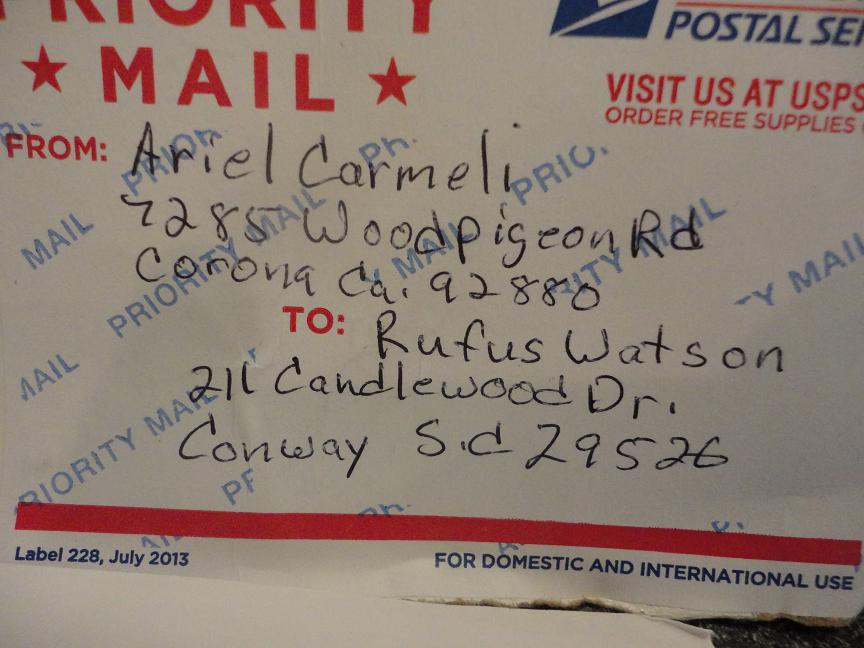 PRIORITY
★ MAIL ★
POSTAL SER
VISIT US AT USPS
ORDER FREE SUPPLIES
FROM: Ariel Carmeli
7285 Woodpigeon Rd
Corona Ca. 92880
TO: Rufus Watson
211 Candlewood Dr.
Conway S.C 29526
PRIORITY MAIL
Label 228, July 2013
FOR DOMESTIC AND INTERNATIONAL USE